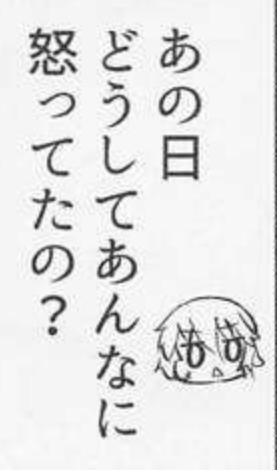 あの日
どうしてあんなに
怒ってたの？